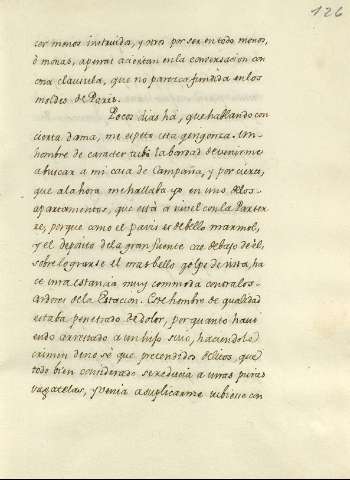 126
cor menos instruida, y otros por ser en todo monos,
ò monas, apenas aciertan en la conversacion con
una clausula, que no parezca fundida en los
moldes de Paris.
Pocos dias há, que hablando con
cierta dama, me espetó esta gengonza. Un
hombre de caracter tubo la bondad de venirme
a buscar a mi casa de Campaña, y por cierto,
que a la hora me hallaba yo en uno de los
apartamentos, que está a nivel con la Parter-
re, porque como el pavis es de bello marmol,
y el depósito de la gran fuente cae debajo de él,
sobre lograrse el mas bello golpe de vista, ha-
ce una estancia muy commoda contra los
ardores de la Estacion. Este hombre de qualidad
estaba penetrado de dolor, por quanto havi-
endo arrestado a un hijo suyo, haciendole
crimin de no sé que pretendidos delitos, que
todo bien considerado se reducia a unas puras
vagatelas, y venia a suplicarme tubiese con